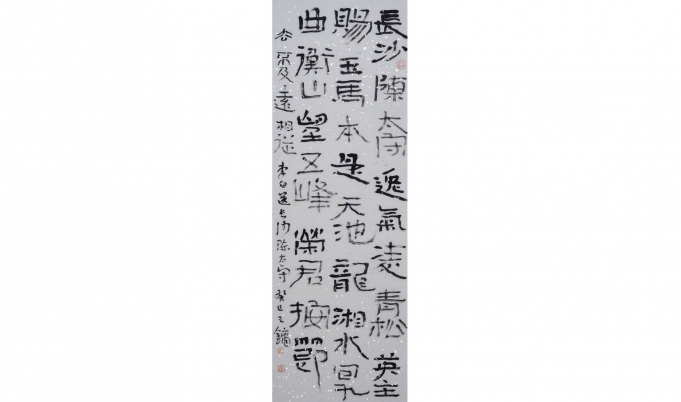 長沙陳太守逸氣凌青松英主
賜玉馬本是天池龍湘水回九
曲衡山望五峰榮君按節
去不及遠相從 李白送長沙陳太守 癸巳之